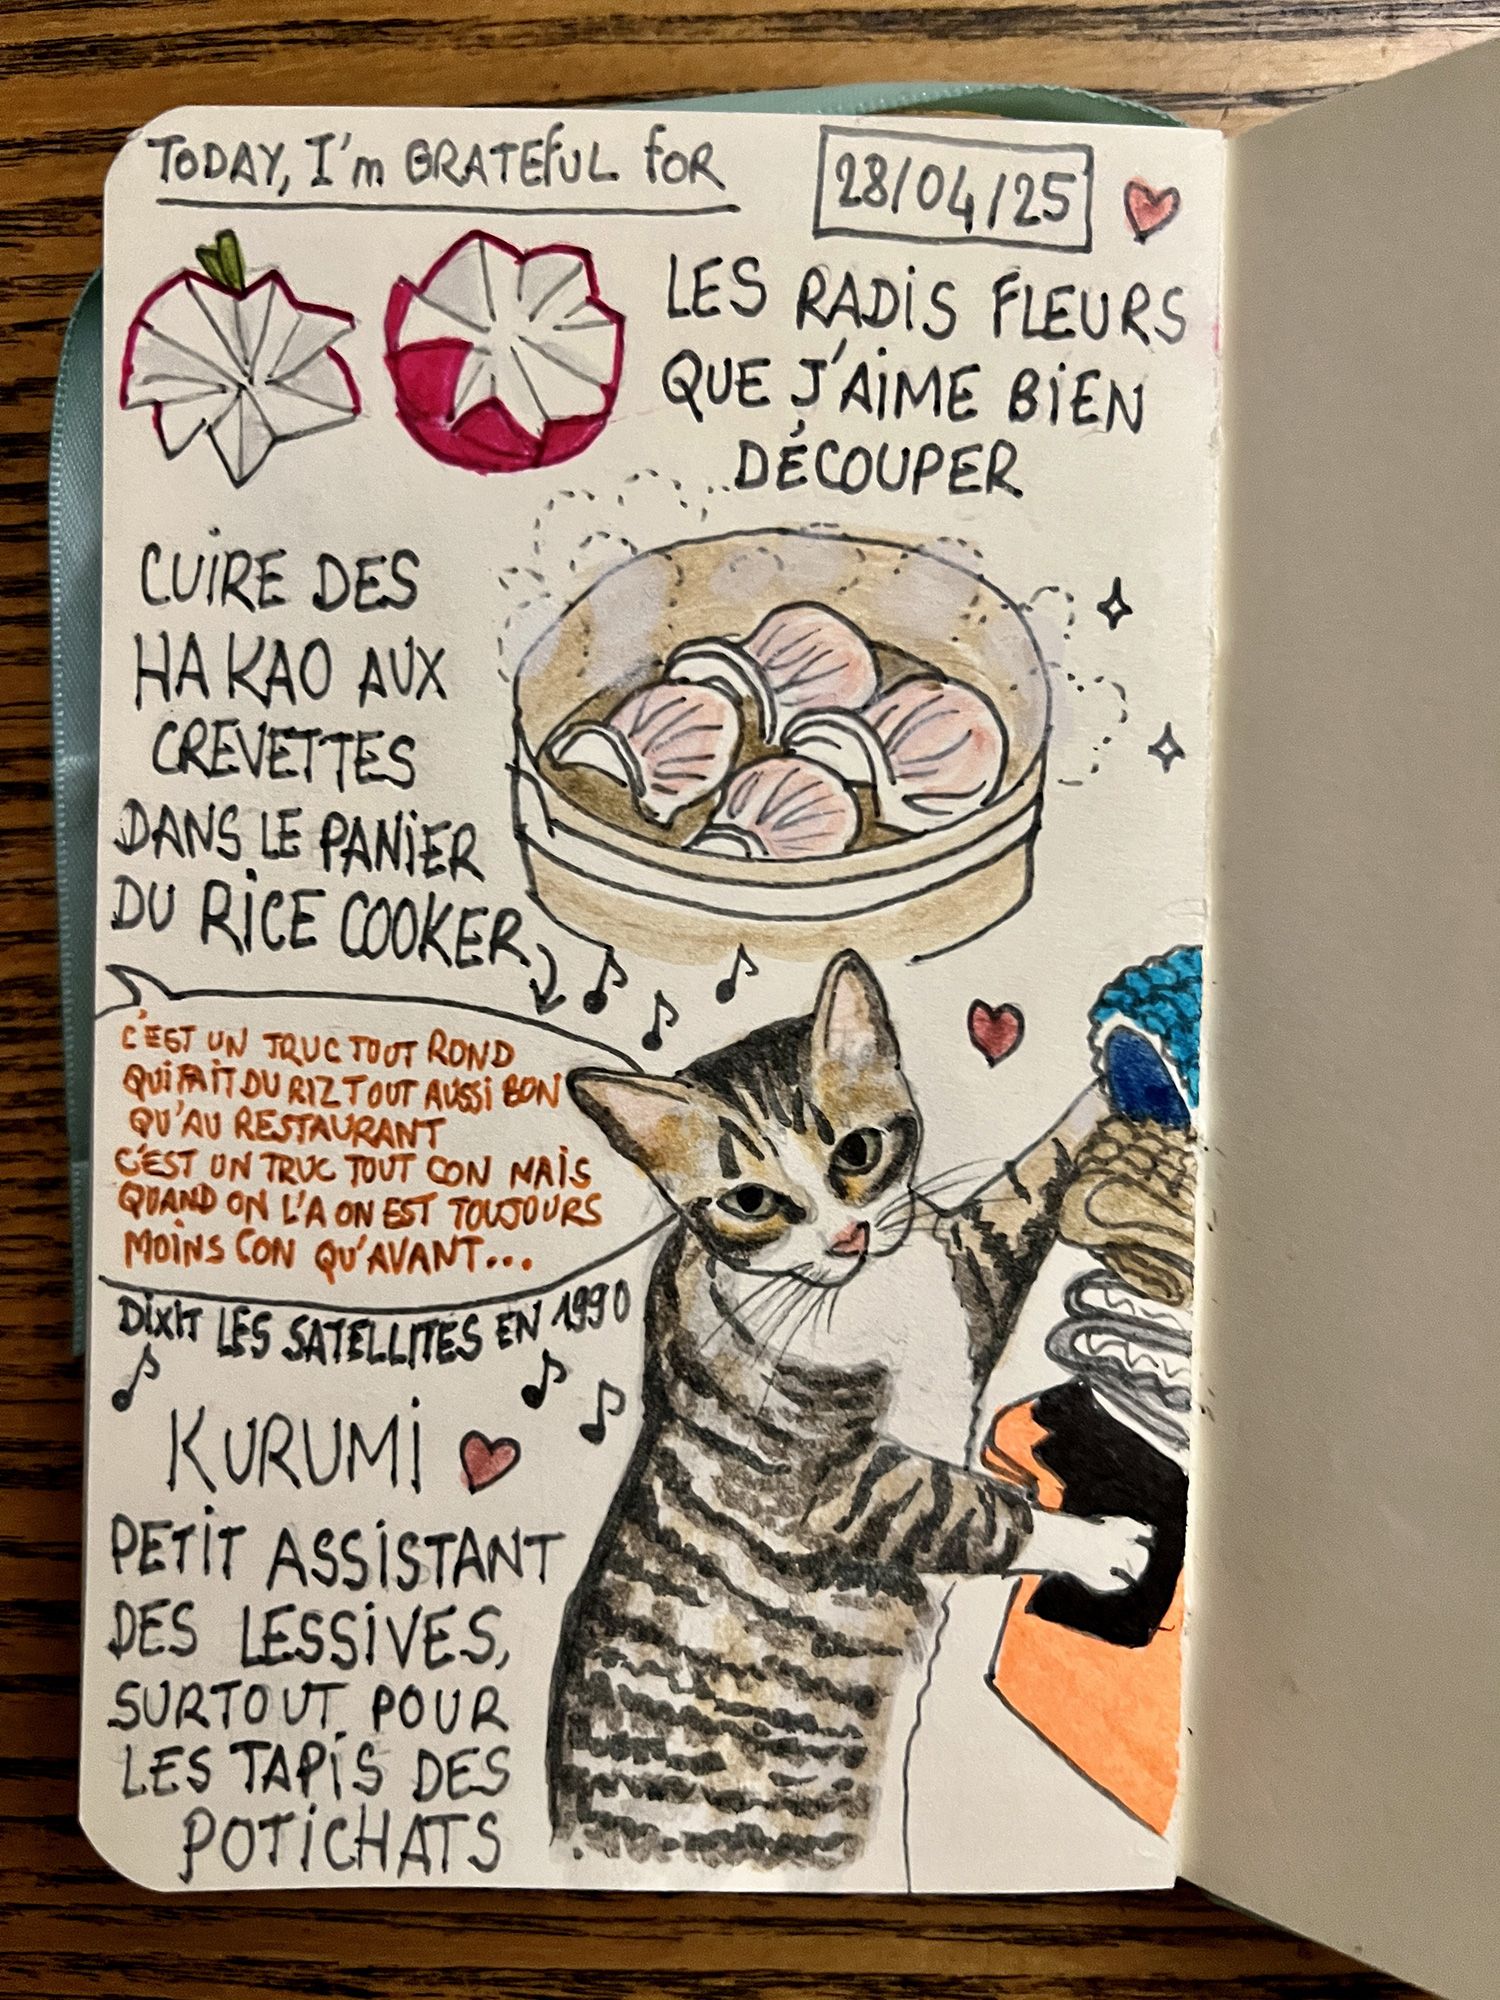 TODAY, I'm GRATEfUL foR
28/04/25
LES RADiS FLEURS
QUE J'AiME BiEN
DÉCOUPER
CUiRE DES
HA KAO AUX
CREVETTES
DANS LE PANiER
DU RiCE COOKER
C'EST UN TRUC TOUT ROND
QUi FAiT DU RIZ TOUT AUSSi BON
QU'AU RESTAURANT
C'EST UN TRUC TOUT CON MAiS
QUAND ON L'A ON EST TOUJOURS
MOiNS CON QU'AVANT...
DixiT LES SATELLiTES EN 1990
KURUMi
PETiT ASSiSTANT
DES LESSiVES,
SURTOUT POUR
LES TAPiS DES
POTiCHATS